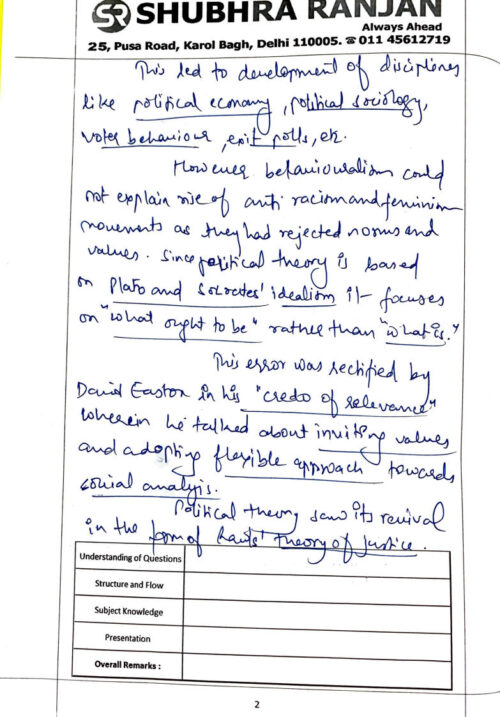 SR SHUBHRA RANJAN
Always Ahead
25, Pusa Road, Karol Bagh, Delhi 110005. ☎ 011 45612719
This led to development of disciplines
like political economy, political sociology,
voter behaviour, exit polls, etc.
However behaviouralism could
not explain rise of anti racism and feminism
movements as they had rejected norms and
values. Since political theory is based
on Plato and Socrates' idealism it focuses
on "what ought to be" rather than "what is."
This error was rectified by
David Easton in his "credo of relevance"
wherein he talked about inviting values
and adopting flexible approach towards
social analysis.
Political theory saw its revival
in the form of Rawls' Theory of Justice.
Understanding of Questions
Structure and Flow
Subject Knowledge
Presentation
Overall Remarks :
2